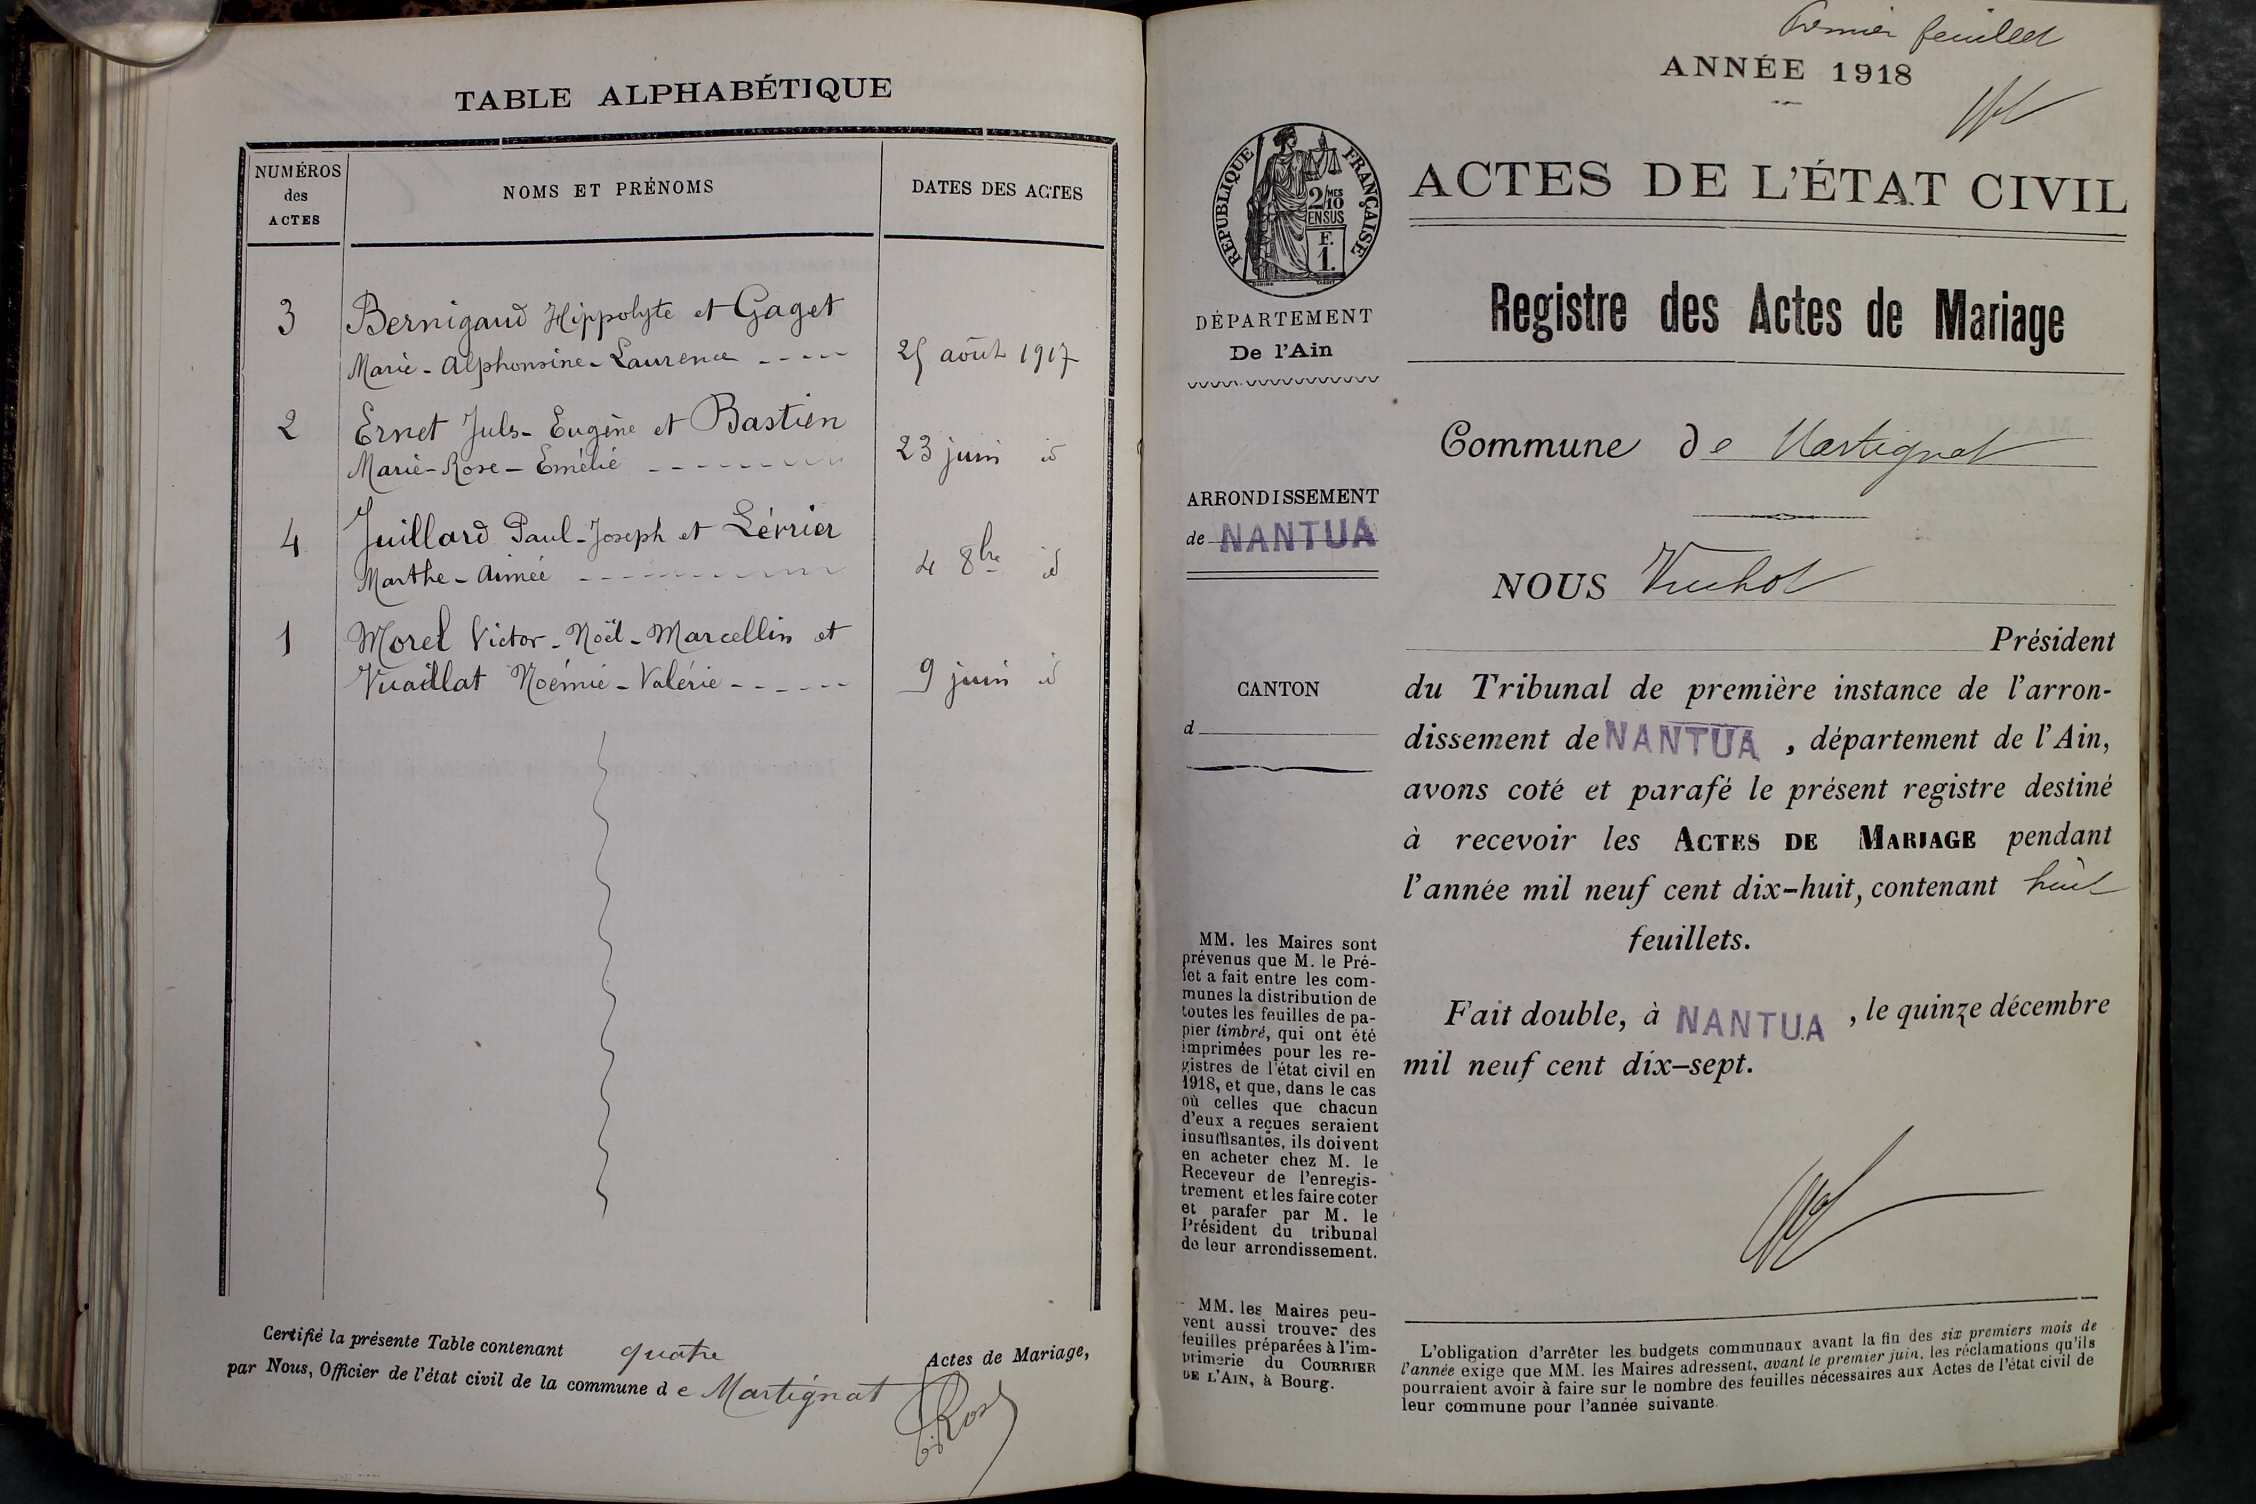 TABLE ALPHABÉTIQUE
NUMÉROS
des
ACTES
NOMS ET PRÉNOMS
DATES DES ACTES
3 Bernigaud Hippolyte et Gaget
Marie-Alphonsine-Laurence ---- 25 août 1917
2 Ernet Juls-Eugène et Bastien
Marie-Rose-Emélie -------- 23 juin id
4 Juillard Paul-Joseph et Lévrier
Marthe-Aimée ---------- 4 8bre id
1 Morel Victor-Noël-Marcellin et
Vuaillat Noémie-Valérie ------ 9 juin id
Certifié la présente Table contenant quatre Actes de Mariage,
par Nous, Officier de l'état civil de la commune de Martignat
Premier feuillet
ANNÉE 1918
RÉPUBLIQUE FRANÇAISE
2/MES
10
EN SUS
F.
1.
DÉPARTEMENT
De l'Ain
ARRONDISSEMENT
de NANTUA
CANTON
d
MM. les Maires sont
prévenus que M. le Pré-
fet a fait entre les com-
munes la distribution de
toutes les feuilles de pa-
pier timbré, qui ont été
imprimées pour les re-
gistres de l'état civil en
1918, et que, dans le cas
où celles que chacun
d'eux a reçues seraient
insuffisantes, ils doivent
en acheter chez M. le
Receveur de l'enregis-
trement et les faire coter
et parafer par M. le
Président du tribunal
de leur arrondissement.
MM. les Maires peu-
vent aussi trouver des
feuilles préparées à l'im-
primerie du COURRIER
DE L'AIN, à Bourg.
ACTES DE L'ÉTAT CIVIL
Registre des Actes de Mariage
Commune de Martignat
NOUS
Président
du Tribunal de première instance de l'arron-
dissement de NANTUA, département de l'Ain,
avons coté et parafé le présent registre destiné
à recevoir les ACTES DE MARIAGE pendant
l'année mil neuf cent dix-huit, contenant huit
feuillets.
Fait double, à NANTUA, le quinze décembre
mil neuf cent dix-sept.
L'obligation d'arrêter les budgets communaux avant la fin des six premiers mois de
l'année exige que MM. les Maires adressent, avant le premier juin, les réclamations qu'ils
pourraient avoir à faire sur le nombre des feuilles nécessaires aux Actes de l'état civil de
leur commune pour l'année suivante.